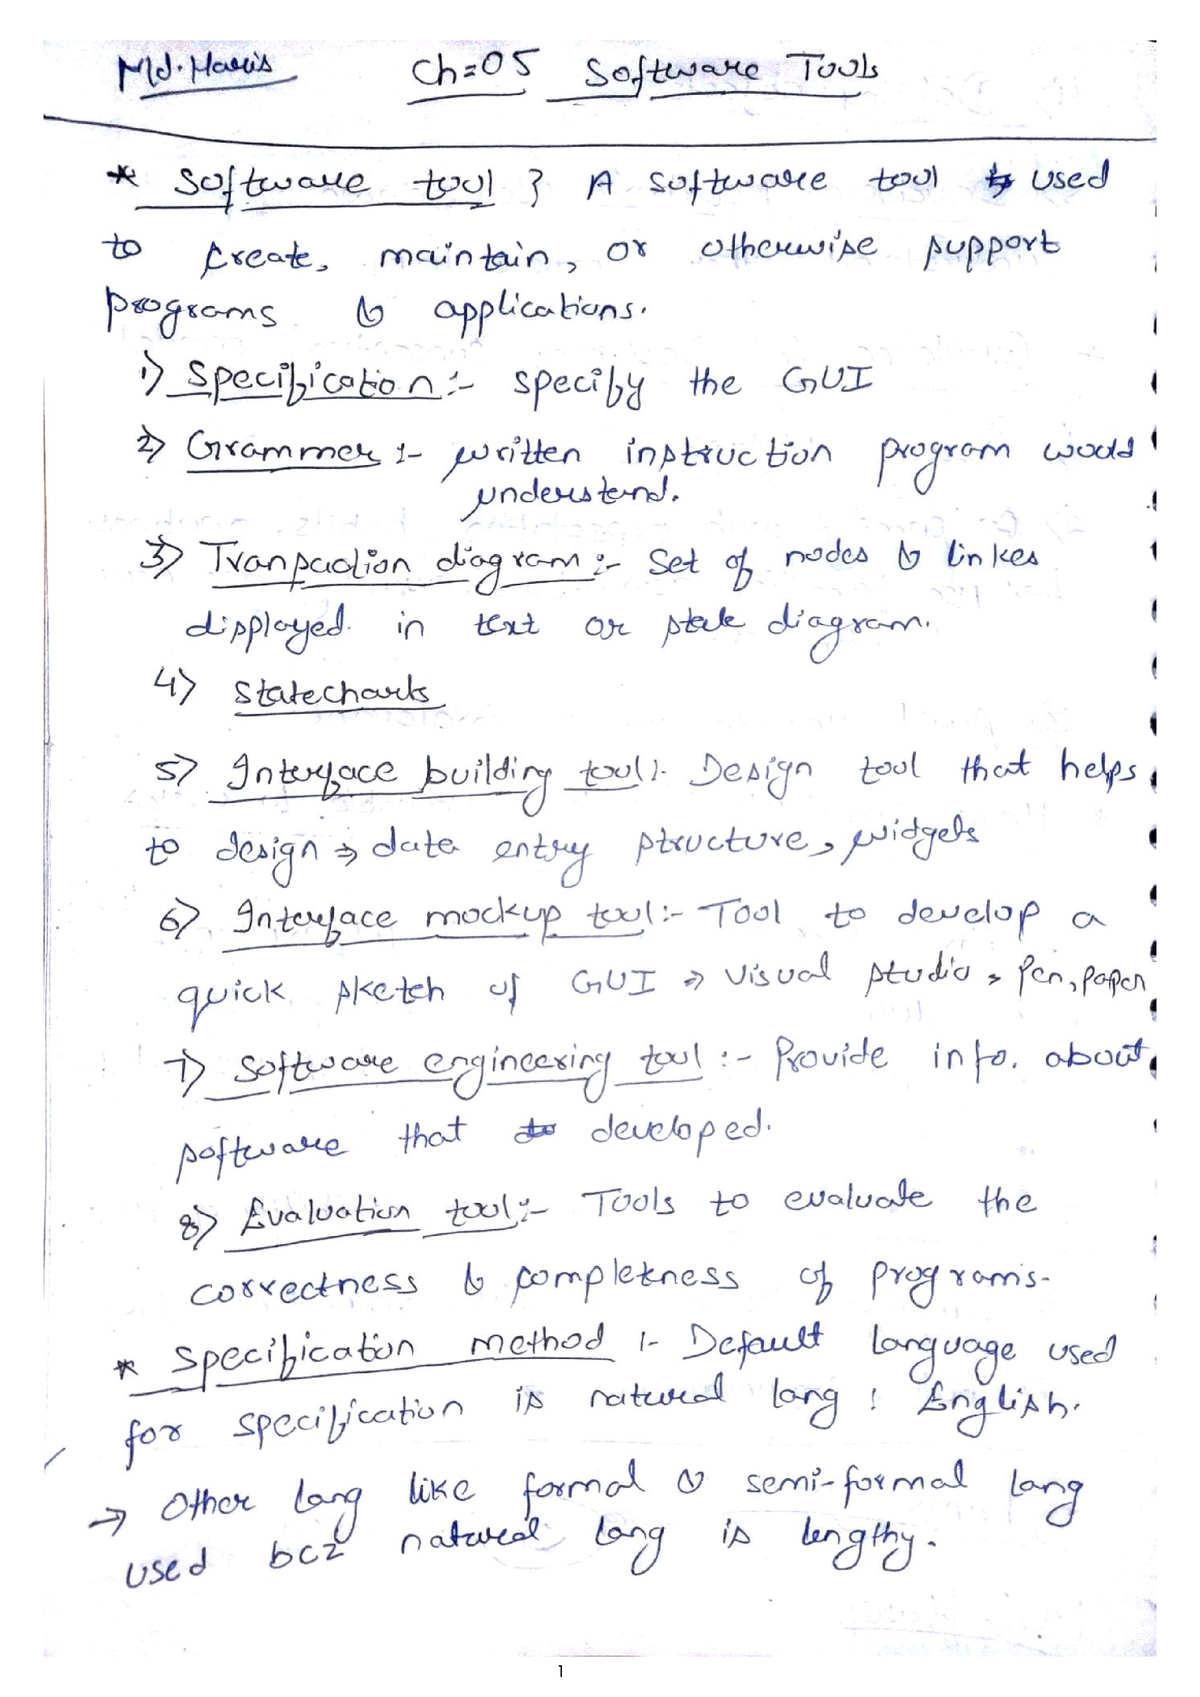 Md. Haris Ch=05 Software Tools
* Software tool } A software tool is used
to create, maintain, or otherwise support
programs & applications.
1) Specification :- specify the GUI
2) Grammer :- written instruction program would
understand.
3) Transaction diagram :- Set of nodes & linkes
displayed in text or state diagram.
4) Statecharts
5) Interface building tool :- Design tool that helps
to design → data entry structure, widgets
6) Interface mockup tool :- Tool to develop a
quick sketch of GUI → visual studio, Pen, paper
7) Software engineering tool :- Provide info. about
software that developed.
8) Evaluation tool :- Tools to evaluate the
correctness & completness of programs.
* Specification method :- Default language used
for specification is natural lang : English.
→ Other lang like formal & semi-formal lang
used bcz natural lang is lengthy.
1